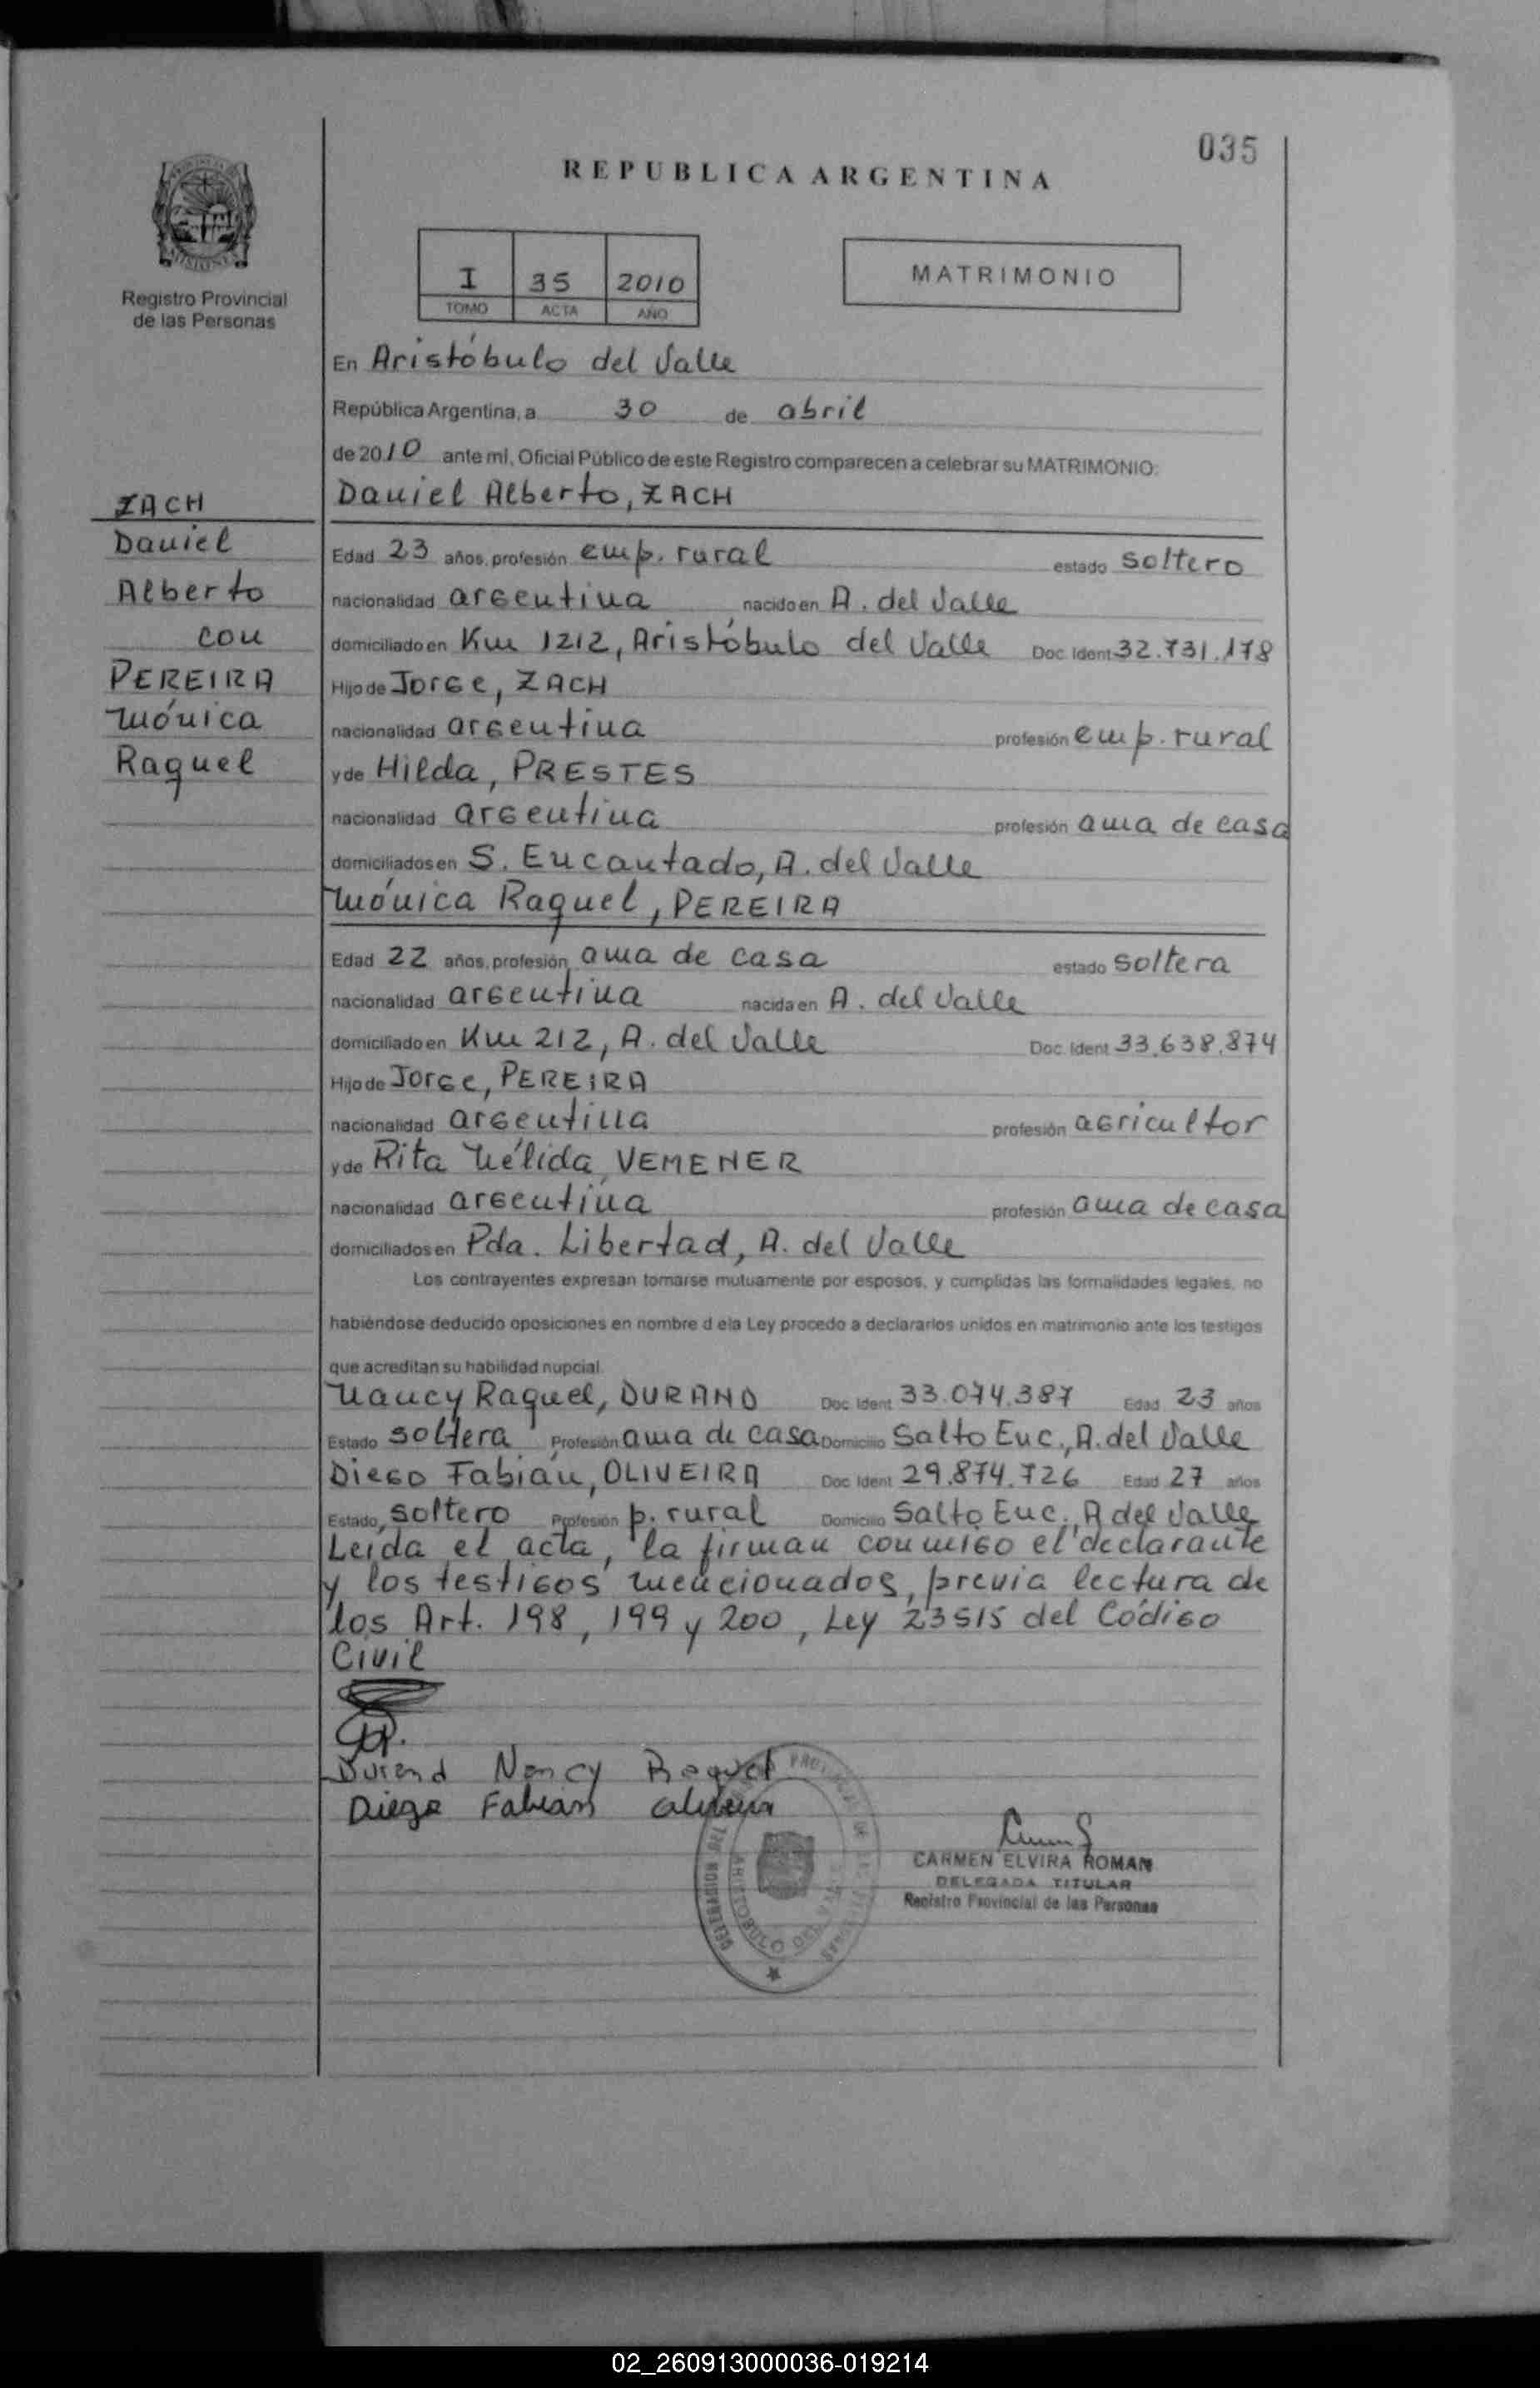 035
REPUBLICA ARGENTINA
Registro Provincial
de las Personas
I 35 2010
TOMO ACTA AÑO
MATRIMONIO
En Aristóbulo del Valle
República Argentina, a 30 de abril
de 2010 ante mi, Oficial Público de este Registro comparecen a celebrar su MATRIMONIO:
ZACH
Daniel
Alberto
con
PEREIRA
Mónica
Raquel
Daniel Alberto, ZACH
Edad 23 años, profesión emp. rural estado soltero
nacionalidad argentina nacido en A. del Valle
domiciliado en Km 1212, Aristóbulo del Valle Doc. Ident 32.731.178
Hijo de Jorge, ZACH
nacionalidad argentina profesión emp. rural
y de Hilda, PRESTES
nacionalidad argentina profesión ama de casa
domiciliados en S. Encantado, A. del Valle
Mónica Raquel, PEREIRA
Edad 22 años, profesión ama de casa estado soltera
nacionalidad argentina nacida en A. del Valle
domiciliado en Km 212, A. del Valle Doc. Ident 33.638.874
Hijo de Jorge, PEREIRA
nacionalidad argentina profesión agricultor
y de Rita Nélida VEMENER
nacionalidad argentina profesión ama de casa
domiciliados en Pda. Libertad, A. del Valle
Los contrayentes expresan tomarse mutuamente por esposos, y cumplidas las formalidades legales, no
habiéndose deducido oposiciones en nombre d ela Ley procedo a declararlos unidos en matrimonio ante los testigos
que acreditan su habilidad nupcial.
Nancy Raquel, DURAND Doc. Ident 33.074.387 Edad 23 años
Estado soltera Profesión ama de casa Domicilio Salto Enc., A. del Valle
Diego Fabián, OLIVEIRA Doc. Ident 29.874.726 Edad 27 años
Estado soltero Profesión p. rural Domicilio Salto Enc., A del Valle
Leída el acta, la firman conmigo el declarante
y los testigos mencionados, previa lectura de
los Art. 198, 199 y 200, Ley 23515 del Código
Civil
Durand Nancy Raquel
Diego Fabian
CARMEN ELVIRA ROMAN
DELEGADA TITULAR
Registro Provincial de las Personas
02_260913000036-019214